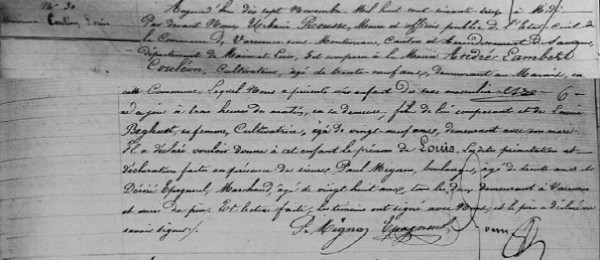 N° 30
Louis
Aujourd'hui dix sept Novembre Mil huit cent soixante treize à Midi
Par devant Nous Urbain Maire et officier public de l'Etat Civil de
la Commune de Varennes sous Montsoreau, Canton et Arrondissement de Saumur,
Département de Maine et Loire, Est comparu à la Mairie Lambert
Coulon, Cultivateur, âgé de trente neuf ans, demeurant au en
cette Commune, Lequel Nous a présenté un enfant du sexe masculin né
à trois heures du matin, en sa demeure, fils de lui comparant et de Louise
sa femme, Cultivatrice, âgée de vingt neuf ans, demeurant avec son mari
Il a déclaré vouloir donner à cet enfant le prénom de Louis. Lesdites présentation et
déclaration faites en présence de sieurs Paul Mignon, boulanger, âgé de trente ans et
Désiré Epagneul, Marchand, âgé de vingt huit ans, tous les deux demeurant à Varennes
et amis du père. Et lecture faite, les témoins ont signé avec Nous, et le père a déclaré ne
savoir signer.
P. Mignon Epagneul